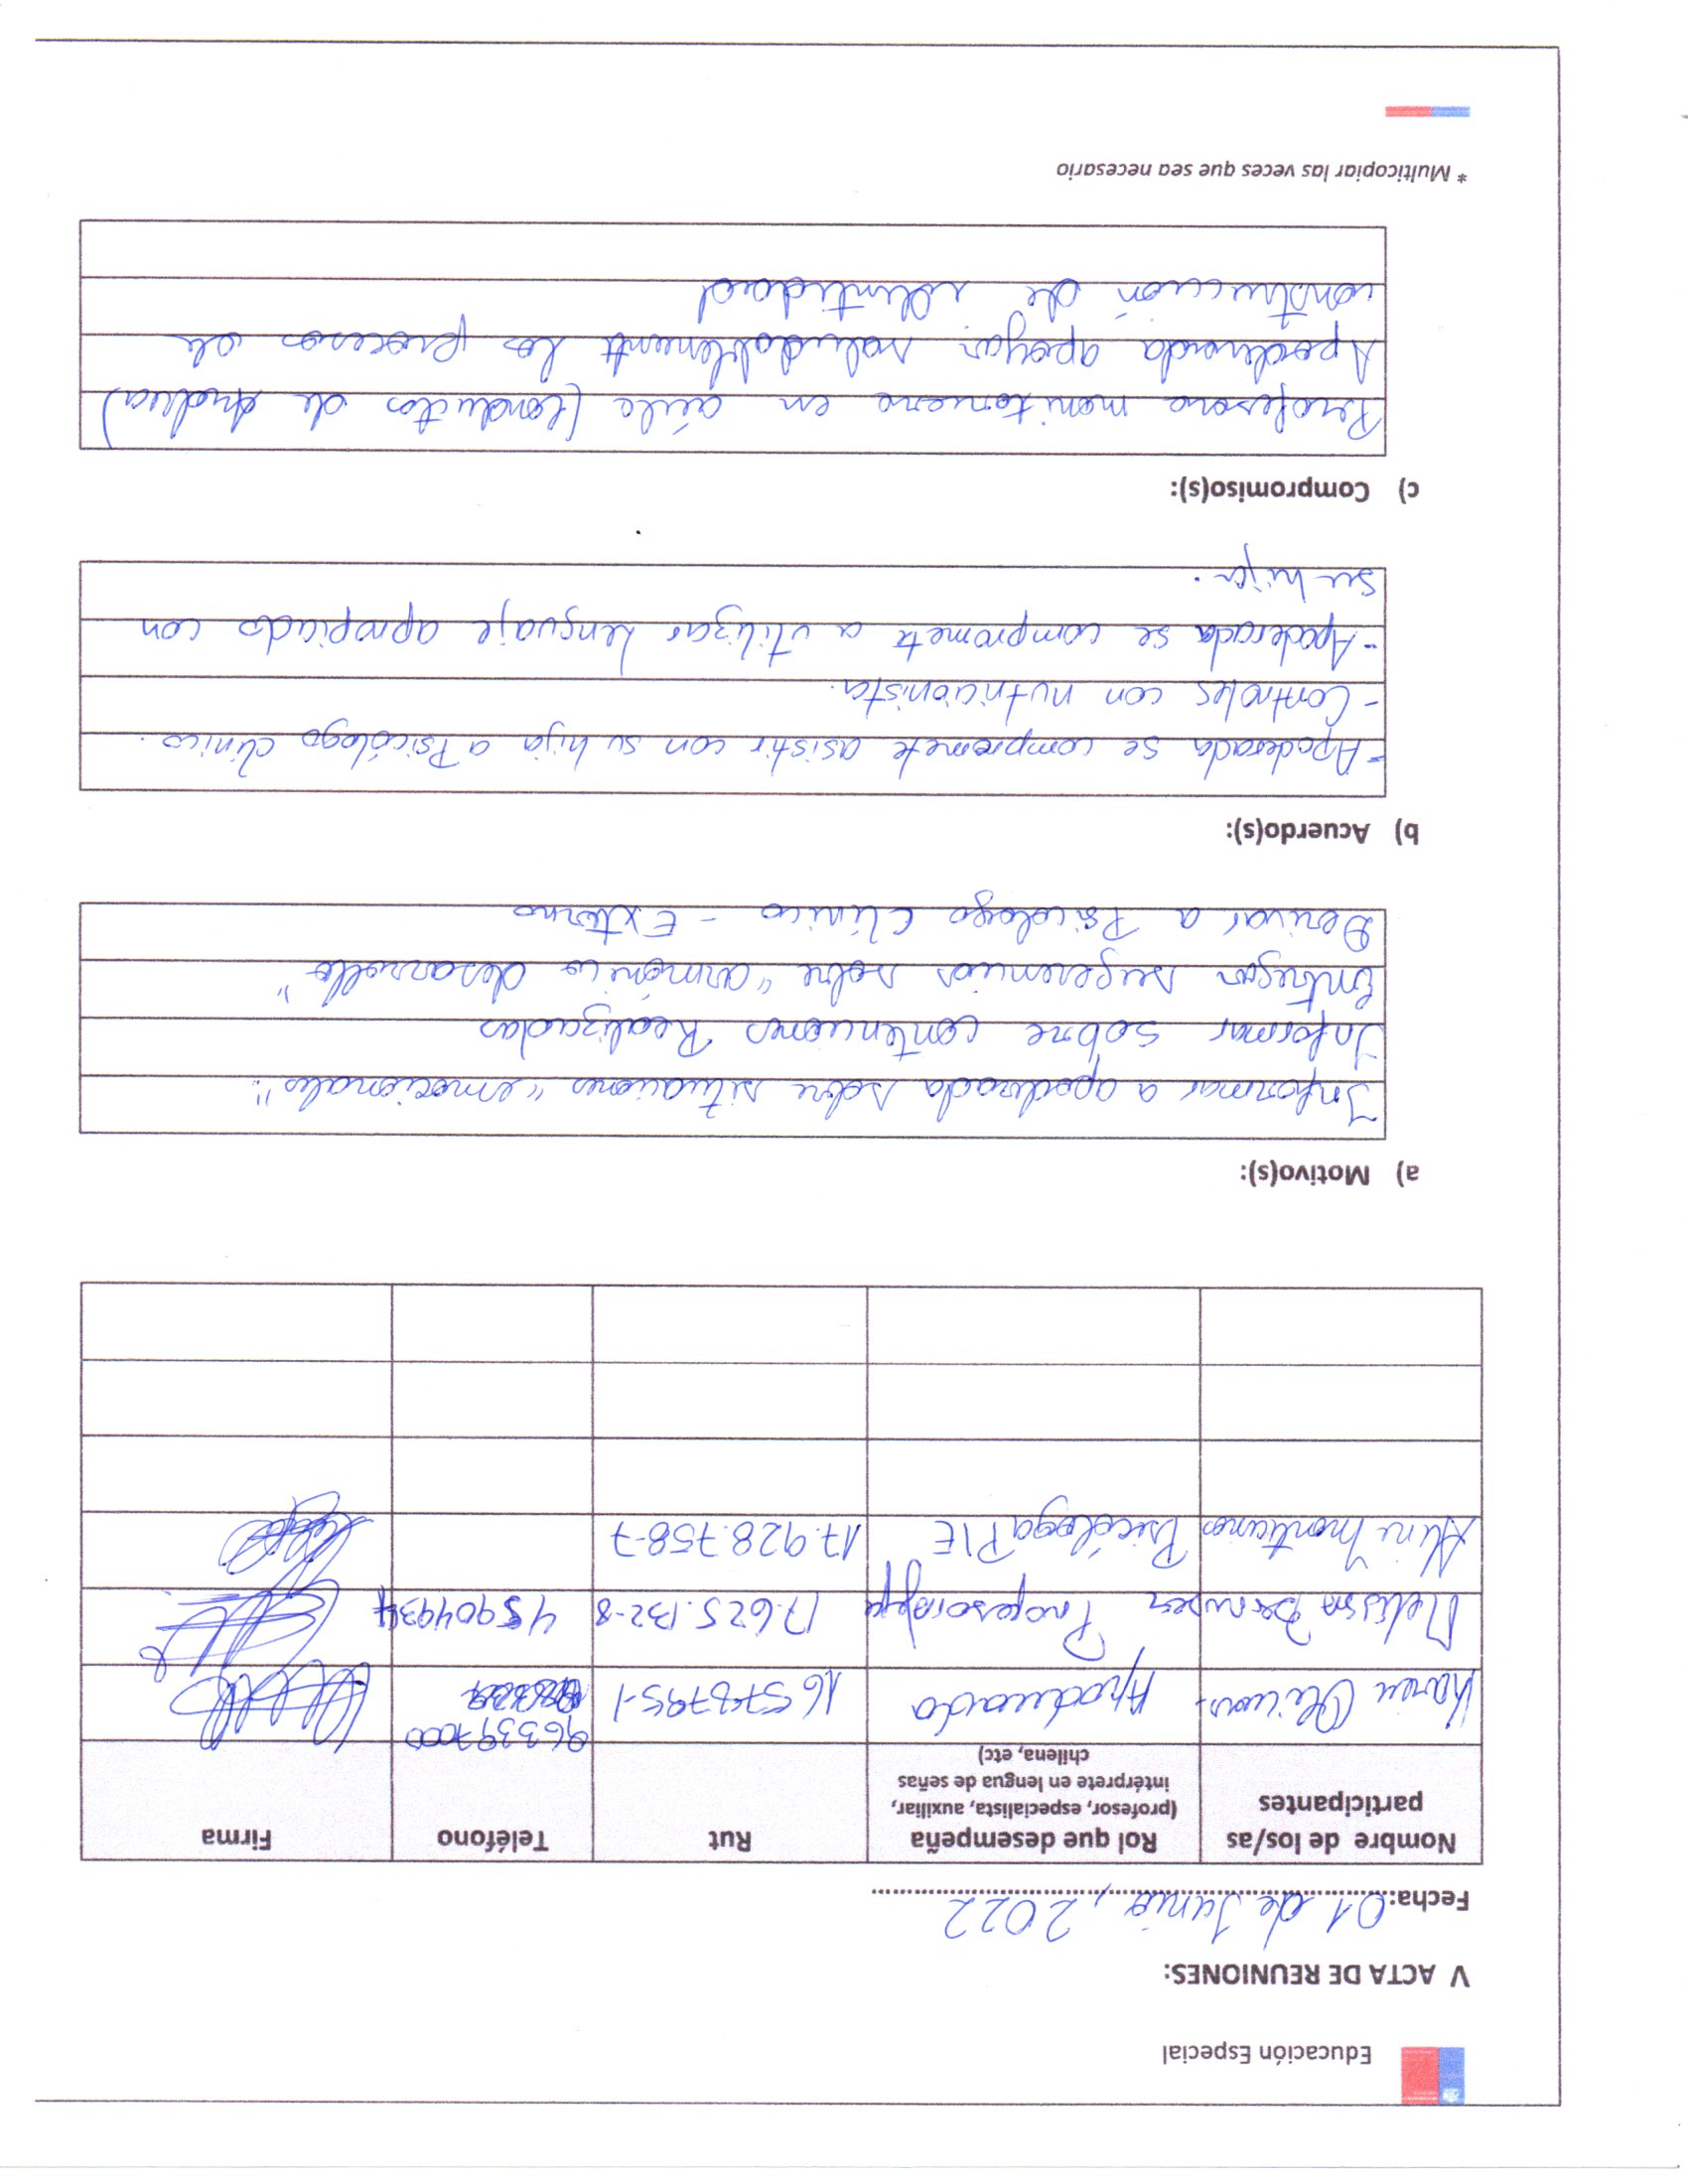 Educación Especial
V ACTA DE REUNIONES:
Fecha: 01 de Junio, 2022
Nombre de los/as participantes
Rol que desempeña
(profesor, especialista, auxiliar,
intérprete en lengua de señas
chilena, etc)
Rut
Teléfono
Firma
Karen Olivares Apoderado 16578795-1 963397000
Melissa Profesora Jefe 17.625.132-8 45904934
Psicóloga PIE 17.928.758-7
a) Motivo(s):
Informar a apoderada sobre situaciones "emocionales".
Informar sobre contenciones Realizadas
Entregar sugerencias sobre "armónico desarrollo"
Derivar a Psicologo Clínico - Externo
b) Acuerdo(s):
- Apoderada se compromete asistir con su hija a Psicólogo clínico.
- Controles con nutricionista.
- Apoderada se compromete a utilizar lenguaje apropiado con
su hija.
c) Compromiso(s):
Profesora monitoreara en aula (conductas de)
Apoderada apoyar saludablemente los procesos de
construcción de identidad
* Multicopiar las veces que sea necesario